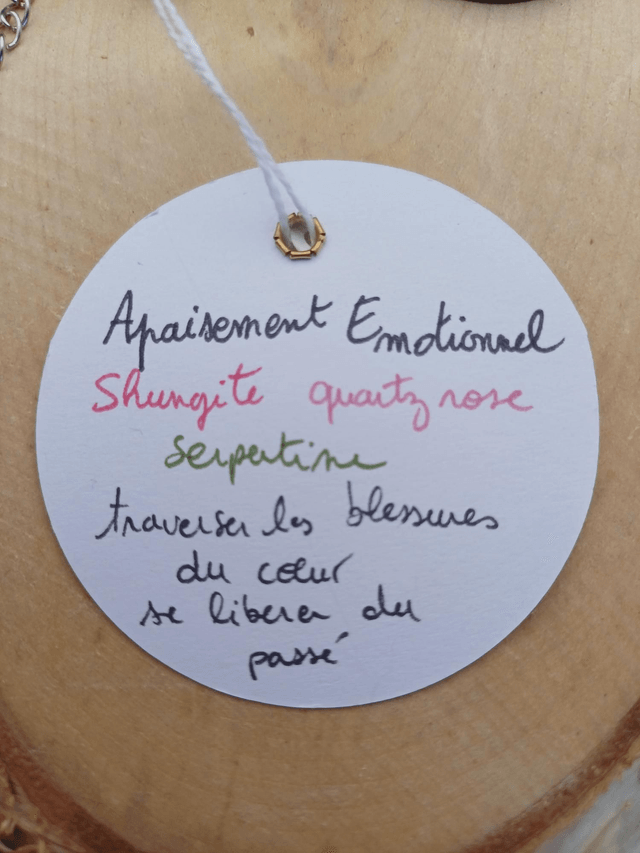 Apaisement Emotionnel
Shungite quartz rose
serpentine
traverser les blessures
du cœur
se liberer du
passé